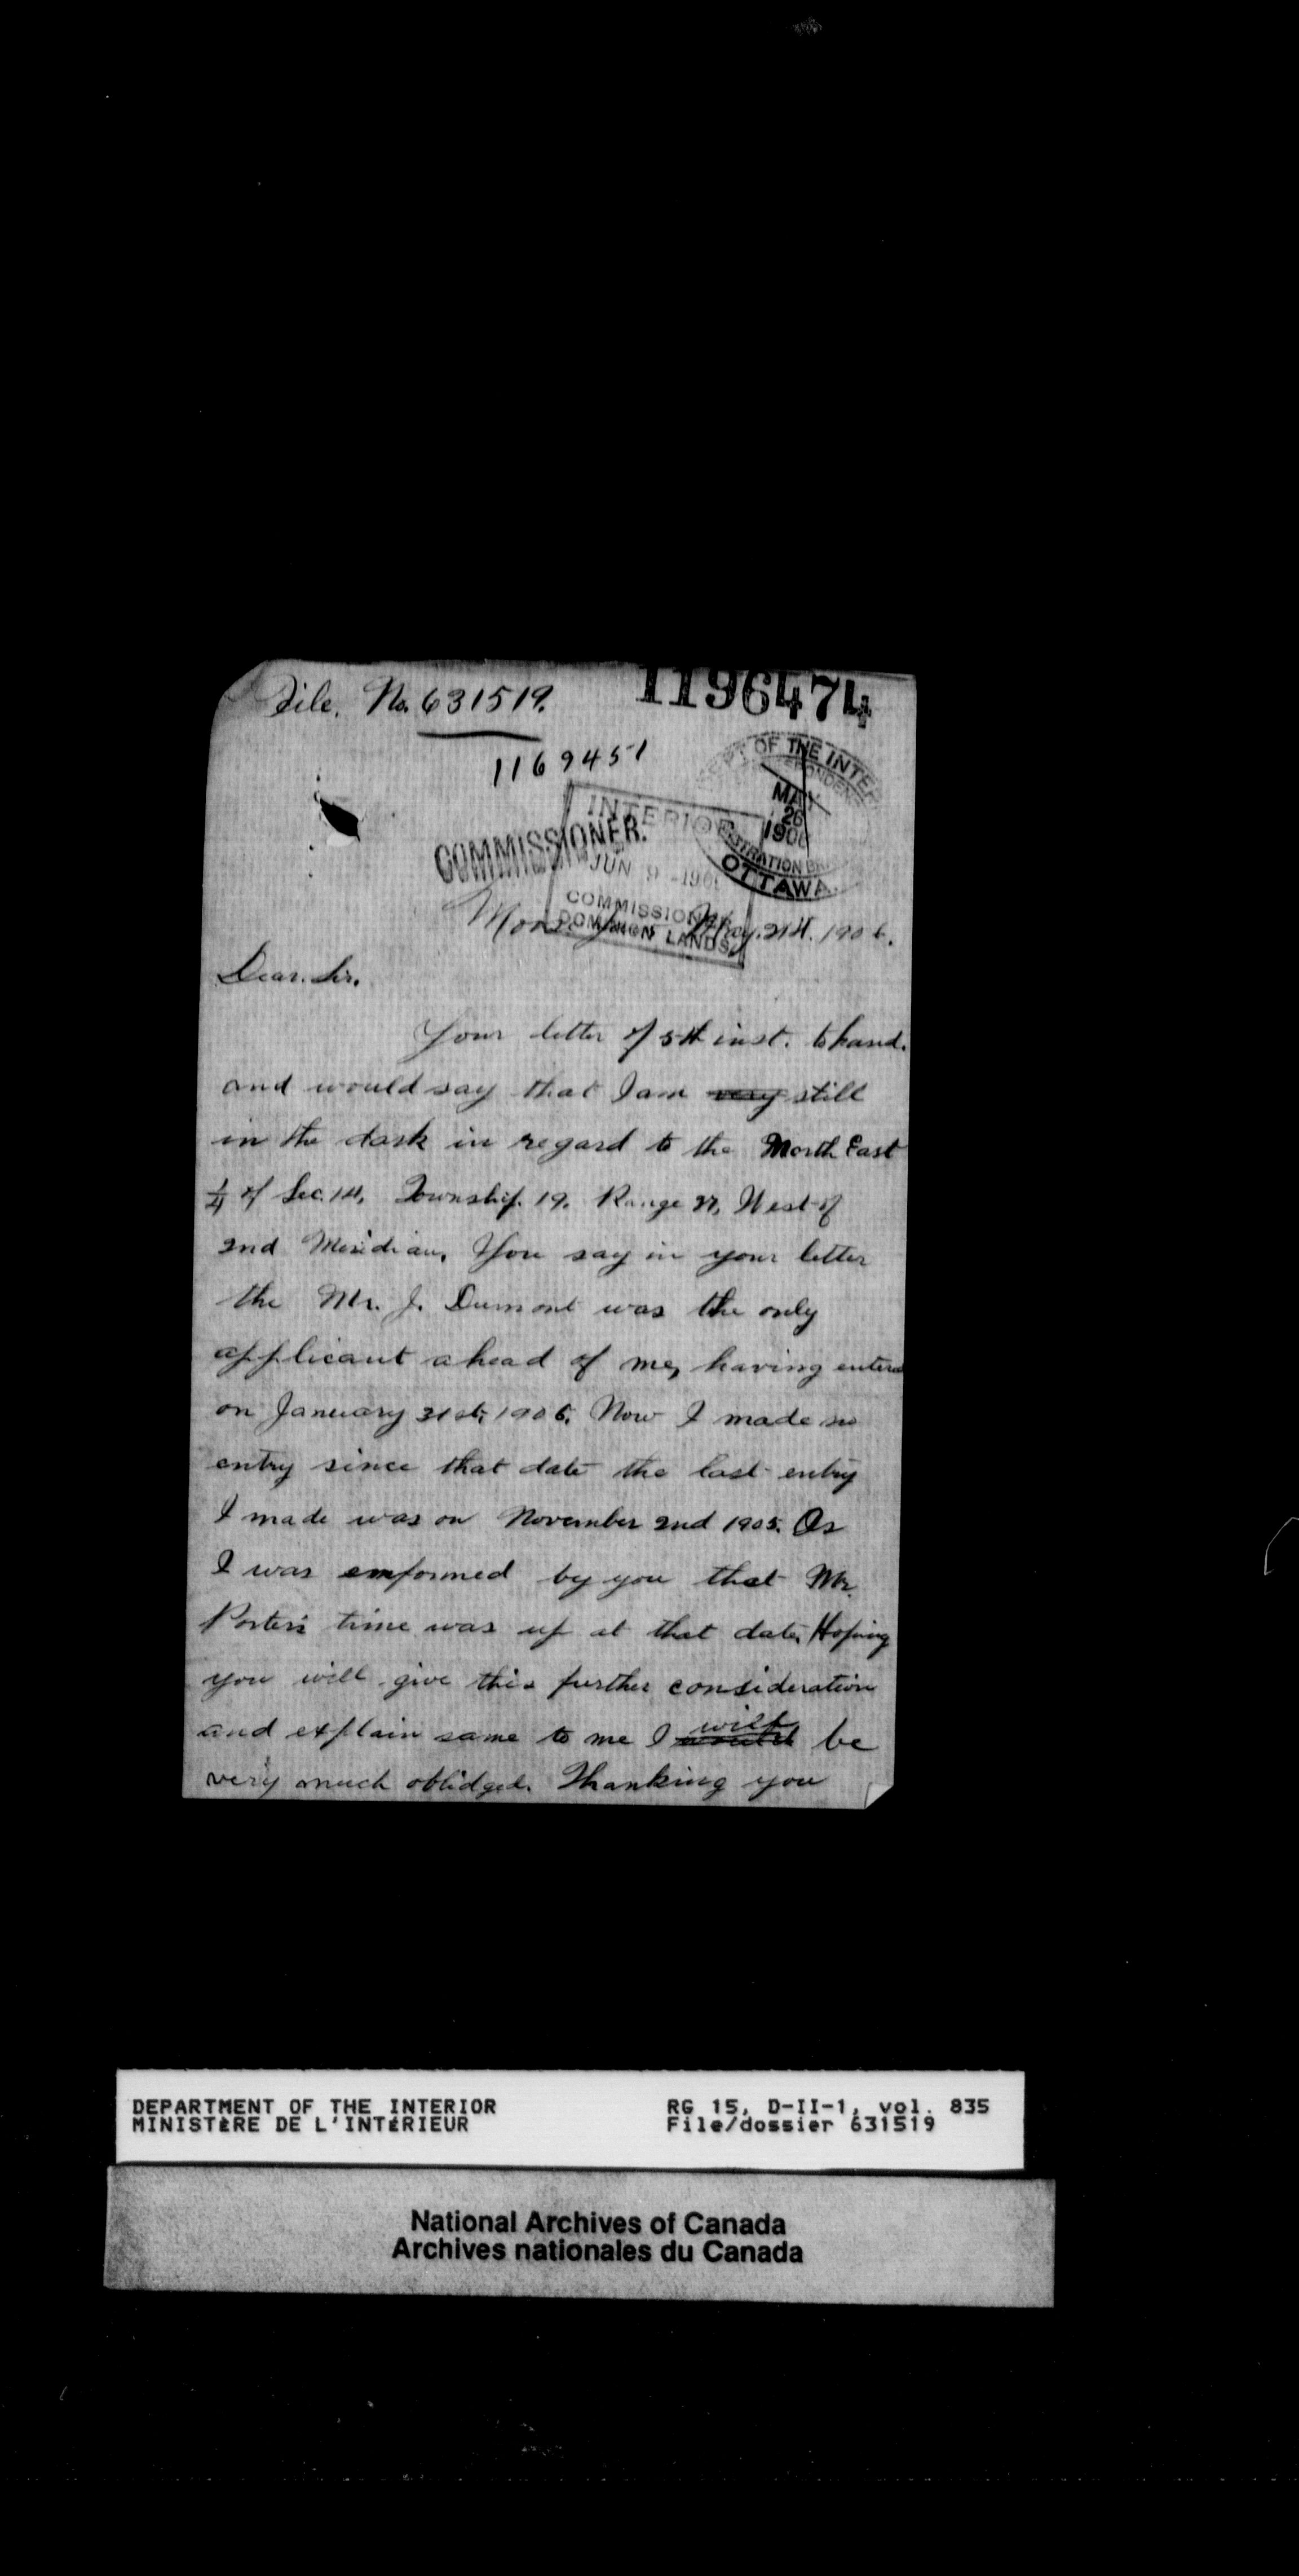 File. No. 631519.
1196474
1169451
DEPT OF THE INTERIOR
MAY
26
1906
REGISTRATION BR
OTTAWA.
INTERIOR
COMMISSIONER.
JUN 9 - 190
COMMISSIONER
DOMINION LANDS
Moose Jaw May. 21st. 1906.
Dear. Sir.
Your letter of 5th inst. to hand.
and would say that I am very still
in the dark in regard to the North East
1/4 of Sec. 14, Township. 19. Range 27, West of
2nd Meridian. You say in your letter
the Mr. J. Dumont was the only
applicant ahead of me, having entered
on January 31st, 1906. Now I made no
entry since that date the last entry
I made was on November 2nd 1905. As
I was emformed by you that Mr.
Porter's time was up at that date, Hoping
you will give this further consideration
and explain same to me I would will be
very much oblidged. Thanking you
DEPARTMENT OF THE INTERIOR
MINISTÈRE DE L'INTÉRIEUR
RG 15, D-II-1, vol. 835
File/dossier 631519
National Archives of Canada
Archives nationales du Canada